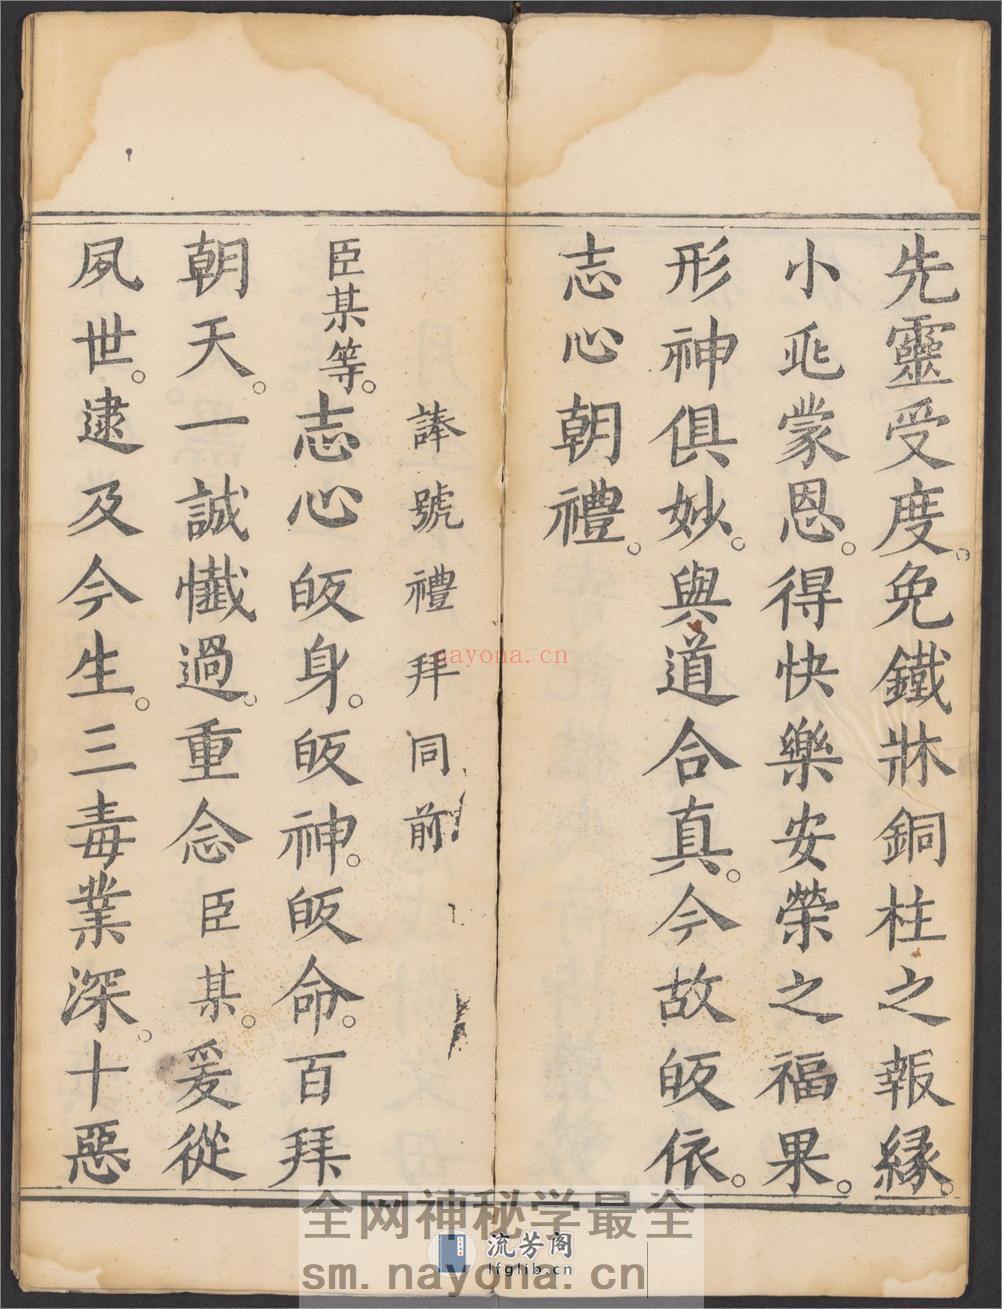 先靈受度。免鐵牀銅柱之報緣。
小兆蒙恩。得快樂安榮之福果。
形神俱妙。與道合真。今故皈依。
志心朝禮。
諱號禮拜同前
臣某等。志心皈身。皈神。皈命。百拜
朝天。一誠懺過。重念臣某。爰從
夙世。逮及今生。三毒業深。十惡
nayona.cn
全网神秘学最全
流芳阁
lfglib.cn
sm.nayona.cn